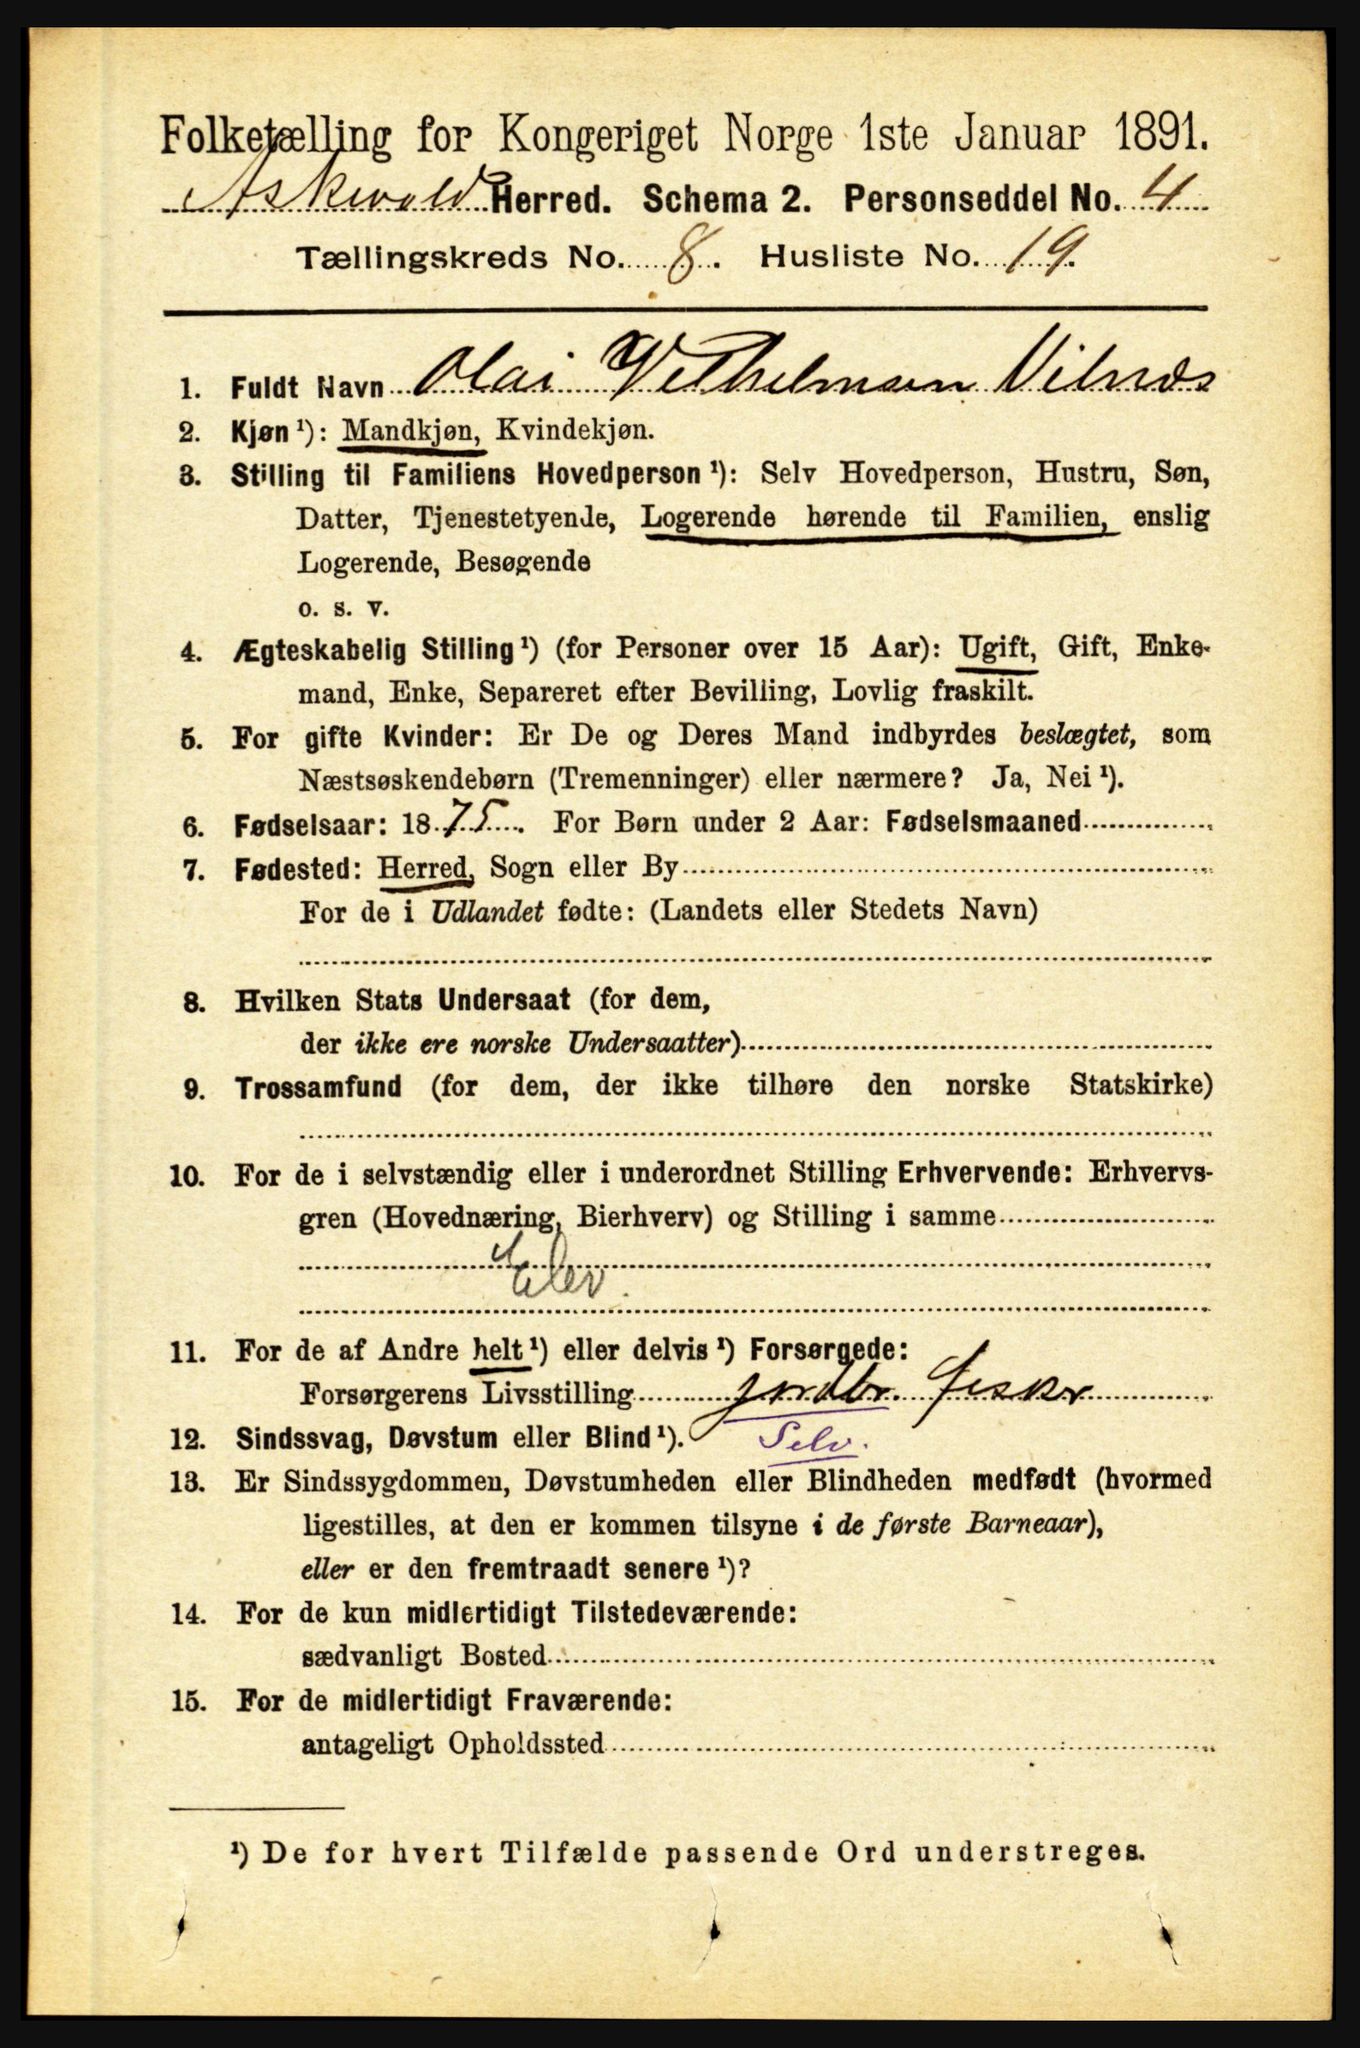 Folketælling for Kongeriget Norge 1ste Januar 1891.
Askevold Herred. Schema 2. Personseddel No. 4
Tællingskreds No. 8. Husliste No. 19.
1. Fuldt Navn Olai Vilhelmsen Vilnæs
2. Kjøn ¹): Mandkjøn, Kvindekjøn.
3. Stilling til Familiens Hovedperson ¹): Selv Hovedperson, Hustru, Søn,
Datter, Tjenestetyende, Logerende hørende til Familien, enslig
Logerende, Besøgende
o. s. v.
4. Ægteskabelig Stilling ¹) (for Personer over 15 Aar): Ugift, Gift, Enke-
mand, Enke, Separeret efter Bevilling, Lovlig fraskilt.
5. For gifte Kvinder: Er De og Deres Mand indbyrdes beslægtet, som
Næstsøskendebørn (Tremenninger) eller nærmere? Ja, Nei ¹).
6. Fødselsaar: 1875. For Børn under 2 Aar: Fødselsmaaned
7. Fødested: Herred, Sogn eller By
For de i Udlandet fødte: (Landets eller Stedets Navn)
8. Hvilken Stats Undersaat (for dem,
der ikke ere norske Undersaatter)
9. Trossamfund (for dem, der ikke tilhøre den norske Statskirke)
10. For de i selvstændig eller i underordnet Stilling Erhvervende: Erhvervs-
gren (Hovednæring, Bierhverv) og Stilling i samme
Elev.
11. For de af Andre helt ¹) eller delvis ¹) Forsørgede:
Forsørgerens Livsstilling jordbr. fisker
12. Sindssvag, Døvstum eller Blind ¹). Selv.
13. Er Sindssygdommen, Døvstumheden eller Blindheden medfødt (hvormed
ligestilles, at den er kommen tilsyne i de første Barneaar),
eller er den fremtraadt senere ¹)?
14. For de kun midlertidigt Tilstedeværende:
sædvanligt Bosted
15. For de midlertidigt Fraværende:
antageligt Opholdssted
¹) De for hvert Tilfælde passende Ord understreges.